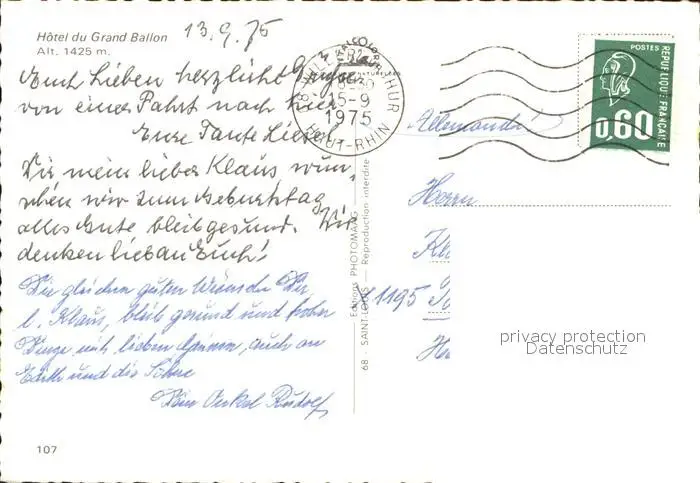 Hôtel du Grand Ballon
Alt. 1425 m.
13.9.75
Euch Lieben herzliche Grüsse
von einer Fahrt nach hier
Eure Tante Liesel
Dir mein lieber Klaus wün-
schen wir zum Geburtstag
alles Gute bleib gesund. Wir
denken lieb an Euch!
Die gleichen guten Wünsche Dir,
l. Klaus, bleib gesund und froher
Dinge mit lieben Grüssen, auch an
Edith und die Söhne
Dein Onkel Rudolf
107
Editions PHOTOMAAG
68 - SAINT-LOUIS — Reproduction interdite
THUR
15-9
1975
HAUT-RHIN
POSTES
REPUBLIQUE FRANÇAISE
0,60
Allemande
Herrn
Kl
71195
privacy protection
Datenschutz